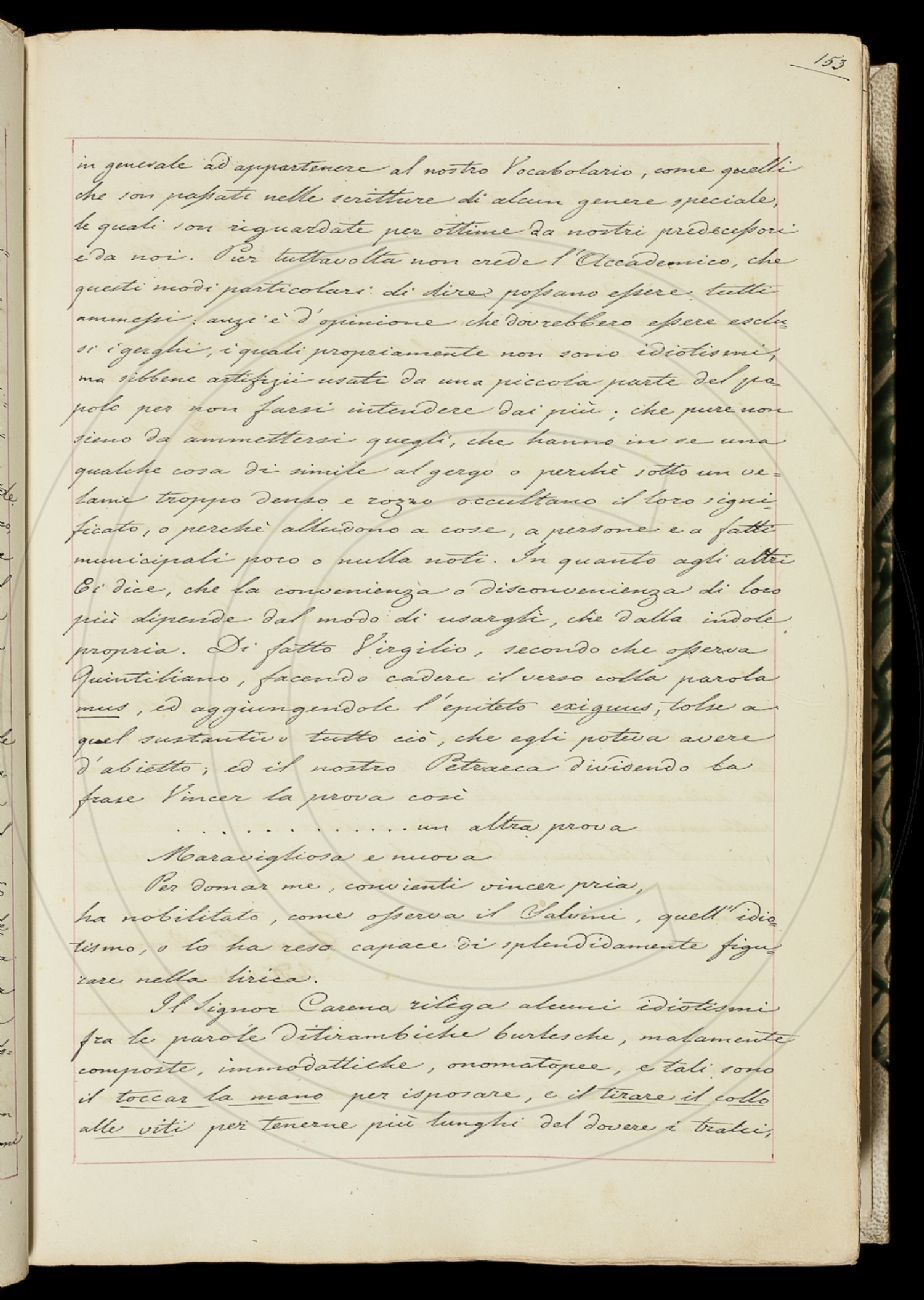 153
in generale ad appartenere al nostro Vocabolario, come quelli
che son passati nelle scritture di alcun genere speciale,
le quali son riguardate per ottime da nostri predecessori
e da noi. Pur tuttavolta non crede l'Accademico, che
questi modi particolari di dire possano essere tutti
ammessi: anzi è d'opinione che dovrebbero essere esclu=
si i gerghi, i quali propriamente non sono idiotismi,
ma sibbene artifizii usati da una piccola parte del po=
polo per non farsi intendere dai più; che pure non
sieno da ammettersi quegli, che hanno in se una
qualche cosa di simile al gergo o perchè sotto un ve=
lame troppo denso e rozzo occultano il loro signi=
ficato, o perchè alludono a cose, a persone e a fatti
municipali poco o nulla noti. In quanto agli altri
Ei dice, che la convenienza o disconvenienza di loro
più dipende dal modo di usargli, che dalla indole
propria. Di fatto Virgilio, secondo che osserva
Quintiliano, facendo cadere il verso colla parola
mus, ed aggiungendole l'epiteto exiguus, tolse a
quel sustantivo tutto ciò, che egli poteva avere
d'abietto; ed il nostro Petrarca dividendo la
frase Vincer la prova così
. . . . . . . . . . . . . . un altra prova
Maravigliosa e nuova
Per domar me, convienti vincer pria,
ha nobilitato, come osserva il Salvini, quell'idio=
tismo, e lo ha reso capace di splendidamente figu=
rare nella lirica.
Il Signor Carena rilega alcuni idiotismi
fra le parole ditirambiche burlesche, malamente
composte, immodattiche, onomatopee, e tali sono
il toccar la mano per isposare, e il tirare il collo
alle viti per tenerne più lunghi del dovere i tralci,